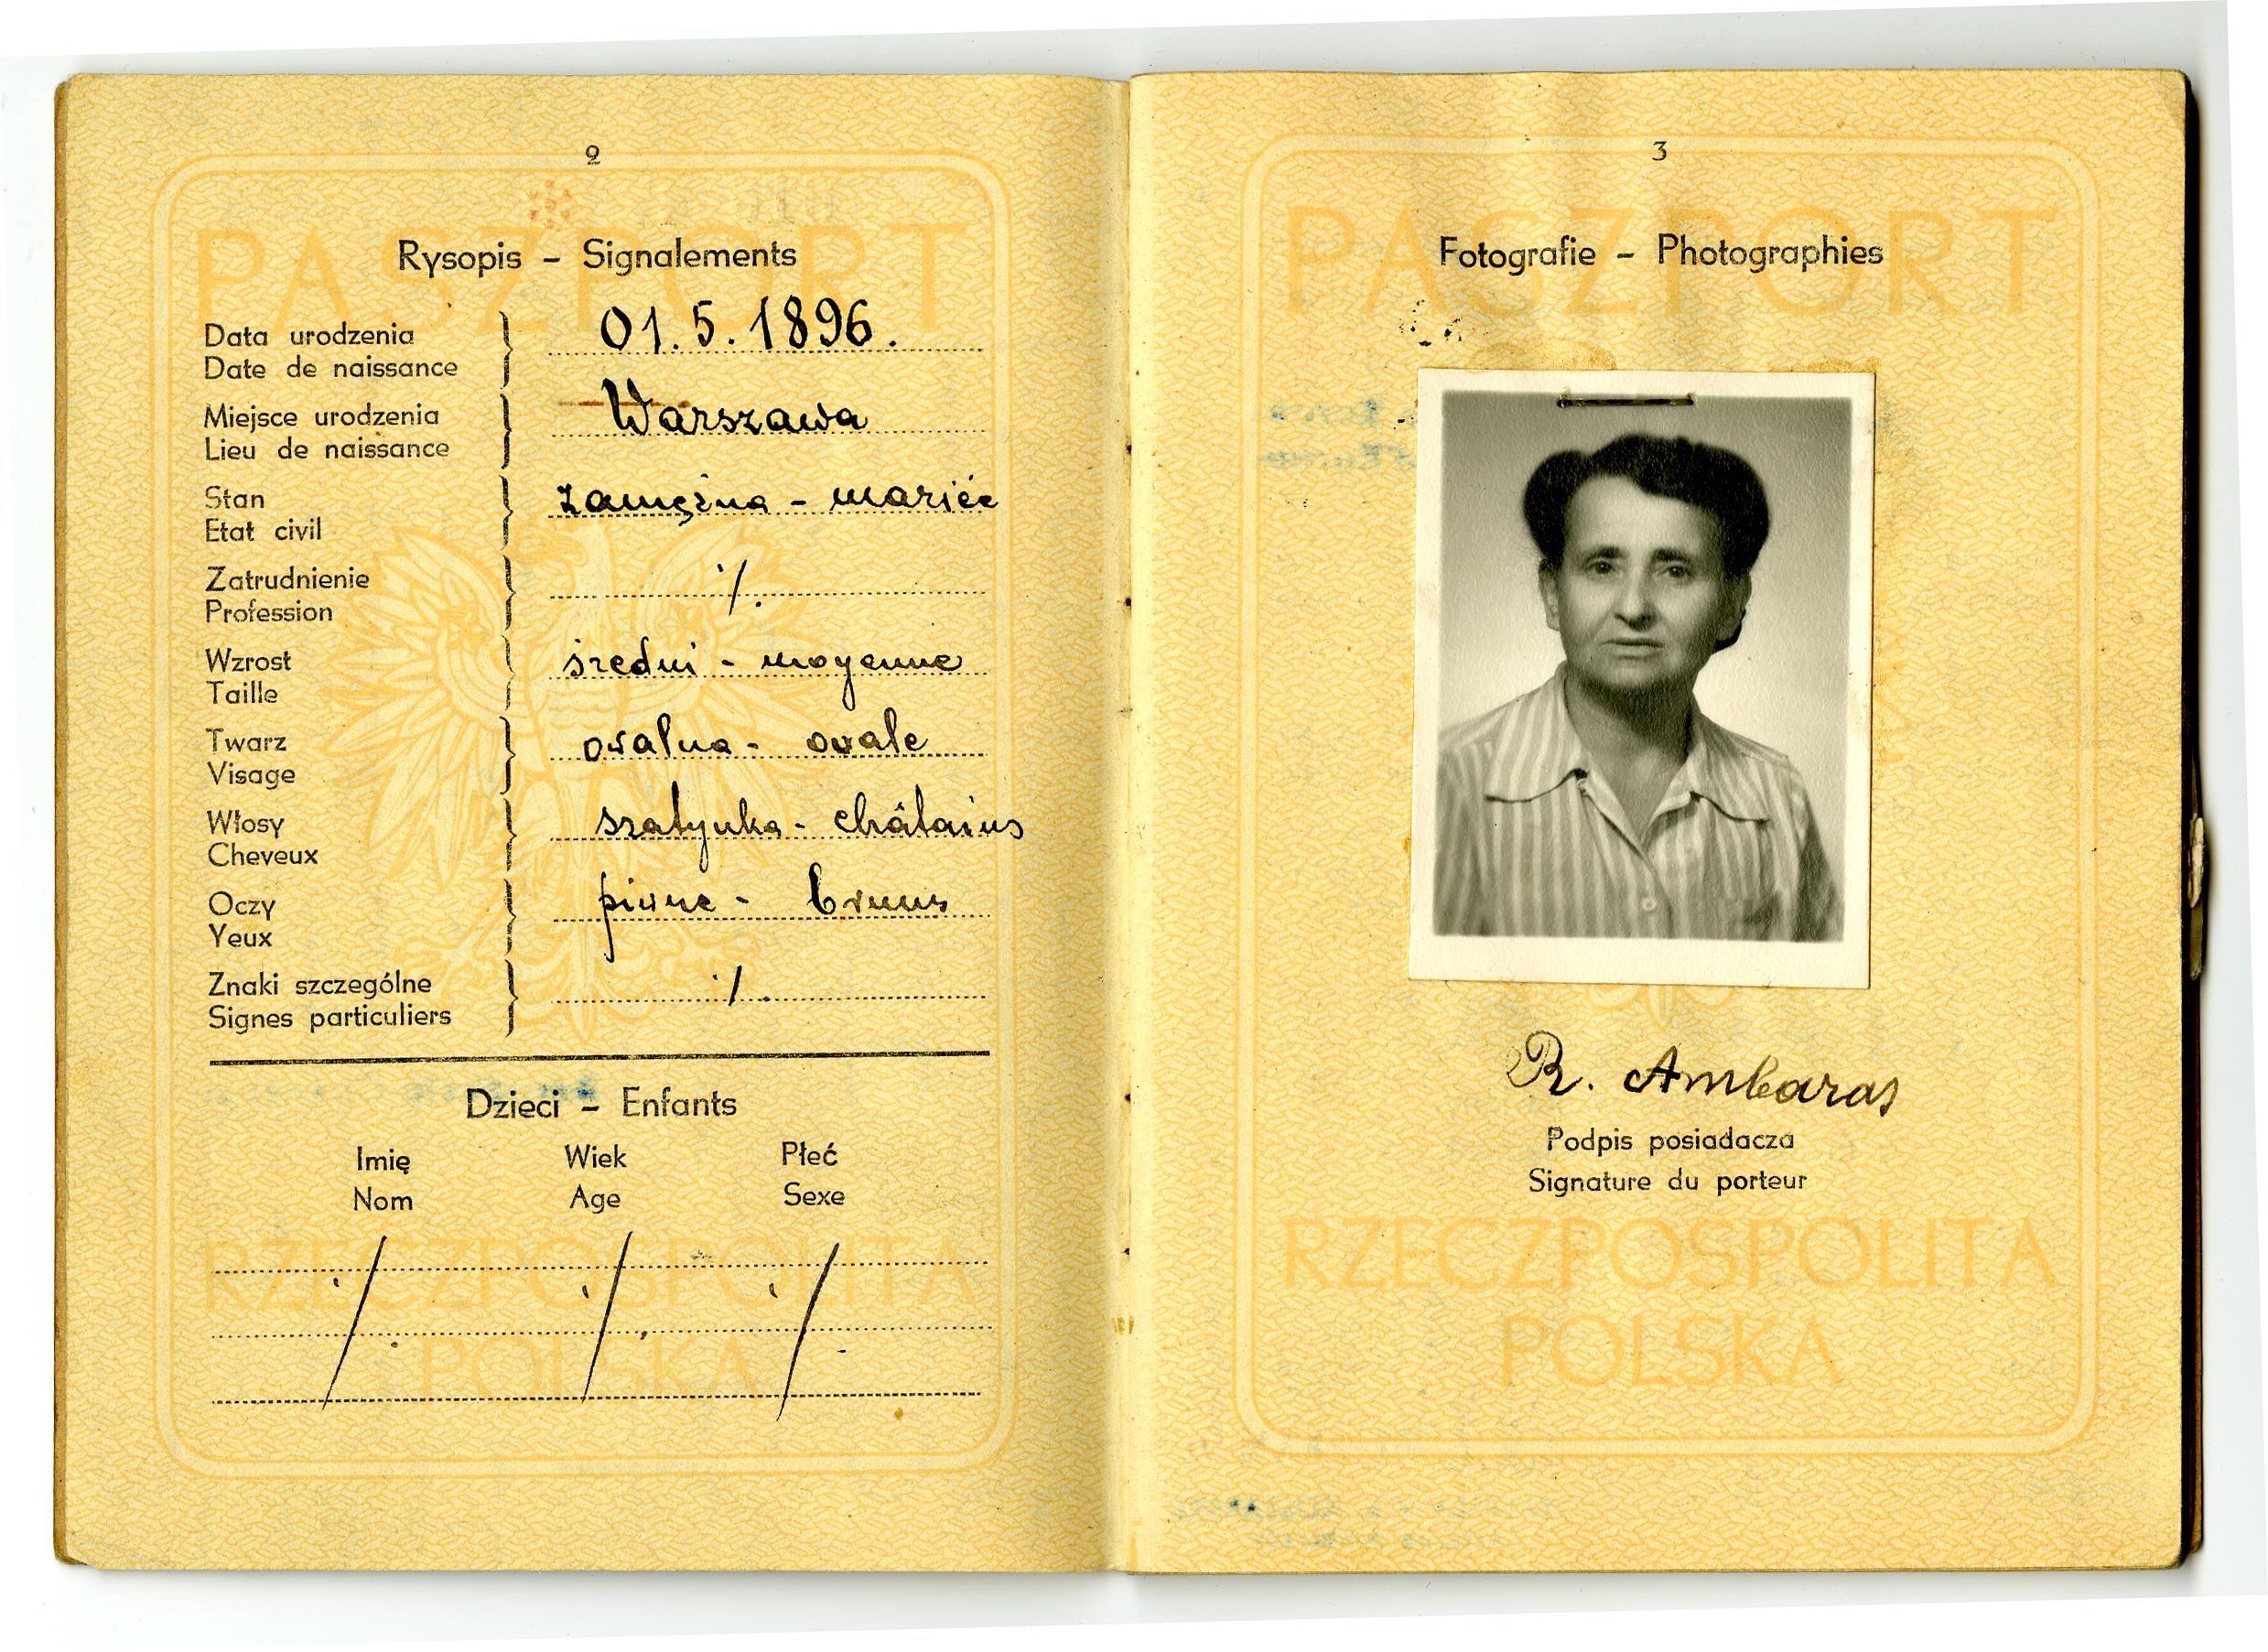 2
PASZPORT
Rysopis – Signalements
Data urodzenia
Date de naissance
01.5.1896.
Miejsce urodzenia
Lieu de naissance
Warszawa
Stan
Etat civil
zamężna - mariée
Zatrudnienie
Profession
./.
Wzrost
Taille
średni - moyenne
Twarz
Visage
owalna - ovale
Włosy
Cheveux
szatynka - châtains
Oczy
Yeux
piwne - bruns
Znaki szczególne
Signes particuliers
./.
Dzieci – Enfants
Imię Wiek Płeć
Nom Age Sexe
./. ./. ./.
RZECZPOSPOLITA
POLSKA
3
PASZPORT
Fotografie – Photographies
R. Ambaras
Podpis posiadacza
Signature du porteur
RZECZPOSPOLITA
POLSKA